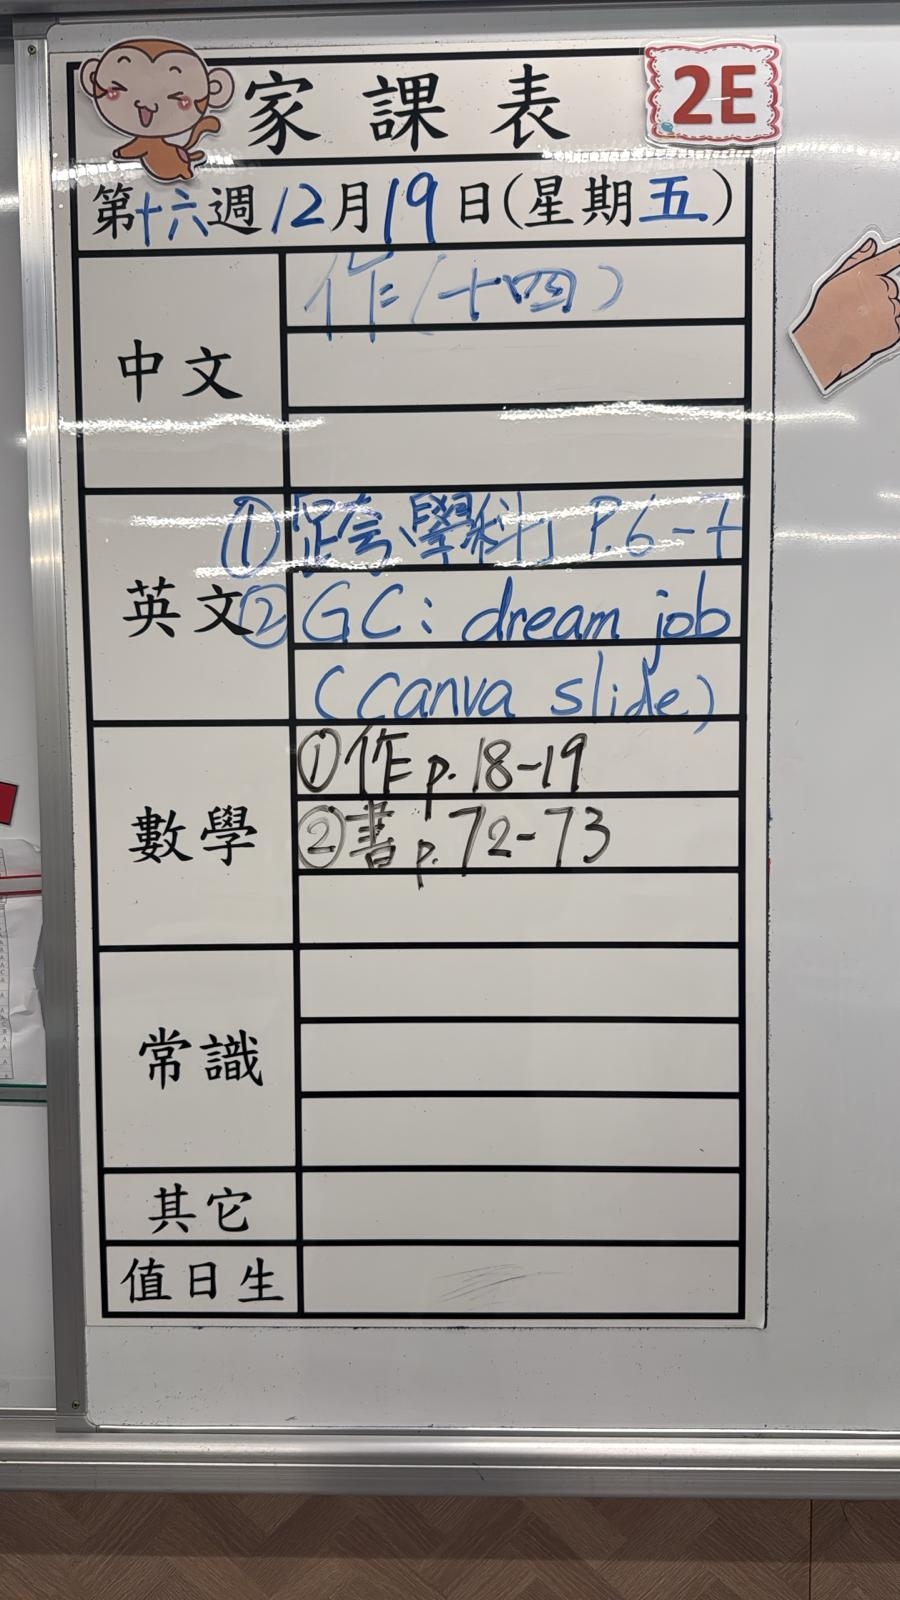 家課表
2E
第十六週12月19日(星期五)
中文
作(十四)
英文
①「跨學科」P.6-7
②GC: dream job
(Canva slide)
數學
①作p.18-19
②書p.72-73
常識
其它
值日生